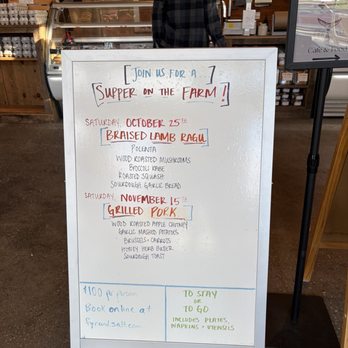 [JOIN US FOR A]
[SUPPER ON THE FARM!]
SATURDAY, OCTOBER 25TH
[BRAISED LAMB RAGU]
POLENTA
WOOD ROASTED MUSHROOMS
BROCCOLI RABE
ROASTED SQUASH
SOURDOUGH GARLIC BREAD
SATURDAY, NOVEMBER 15TH
[GRILLED PORK]
WOOD ROASTED APPLE CHUTNEY
GARLIC MASHED POTATOES
BRUSSELS + CARROTS
HONEY HERB BUTTER
SOURDOUGH TOAST
$100 per person
Book online at
fyrandsalt.com
TO STAY
OR
TO GO
INCLUDES PLATES,
NAPKINS + UTENSILS
Café &